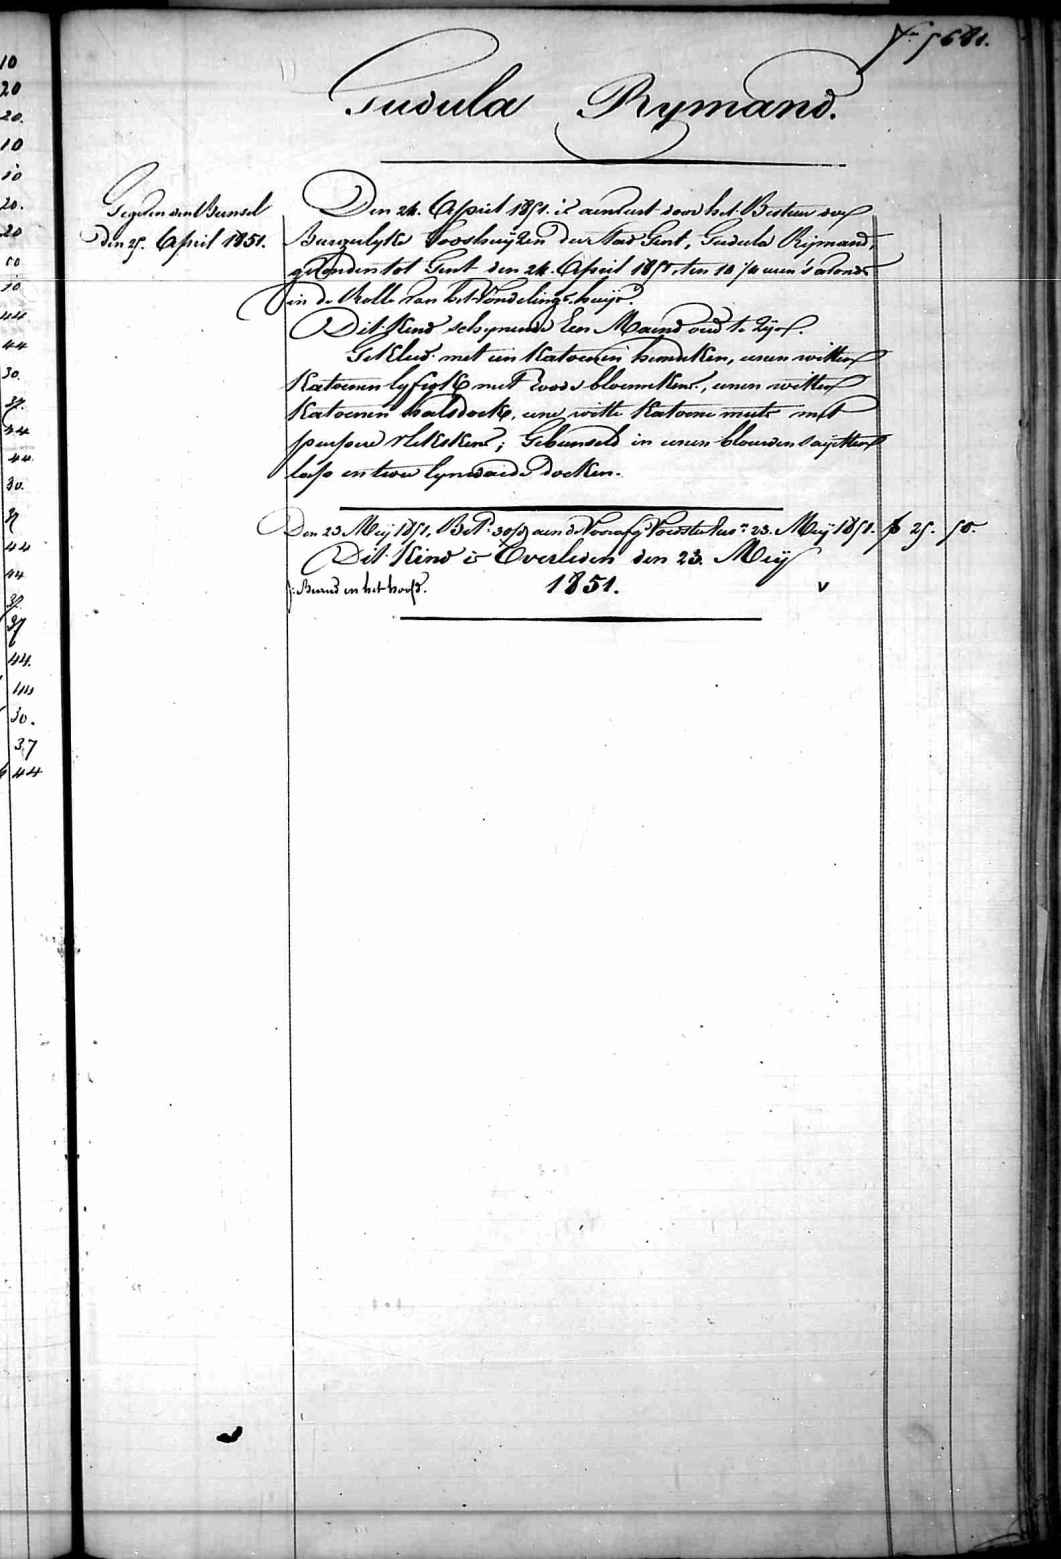 N.º 5681.
Gudula Rymand.
Gegeven den Bunsel
den 25. April 1851.
Den 24. April 1851. is aenveert door het Bestuer der
Burgerlyke Gooshuijzen der Stad Gent, Gudula Rijmand,
gevonden tot Gent den 24. April 1851, ten 10 1/4 uren 's avonds
in de Rolle van het Vondelings-huijs.
Dit Kind schynende Een Maend oud te Zijn.
Gekleed met een Katoenen hemdeken, eenen witten
Katoenen lyfrok met roode bloemekens, eenen witten
Katoenen halsdoek, eene witte Katoene muts met
purpere vlekskens; Gebunseld in eenen blauwen sayetten
lap en twee lynwaede doeken.
Den 23 Meij 1851, Bet. 30 aen de Voorsz. Voedster 23. Meij 1851. 25. 50.
Dit Kind is Overleden den 23. Meij
1851.
in het hoofd. v
10
20
20.
10
10
20.
20
10
10
44
44
30.
37.
44
44.
30.
37
44
44
37.
37
44.
44
30.
37
44